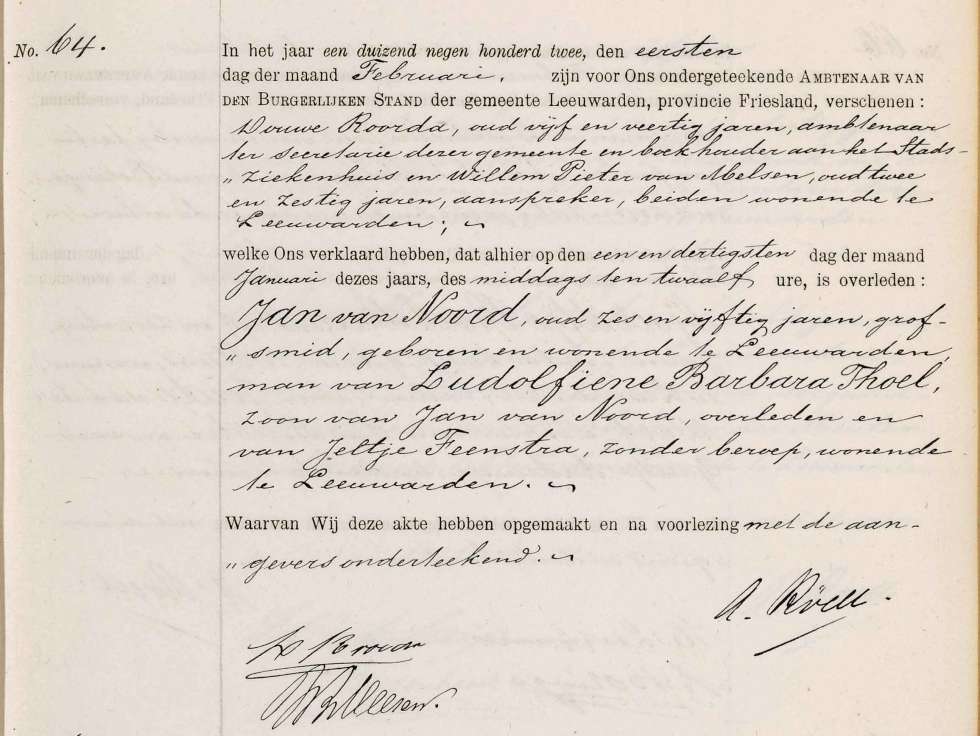 No. 64.
In het jaar een duizend negen honderd twee, den eersten
dag der maand Februari, zijn voor Ons ondergeteekende AMBTENAAR VAN
DEN BURGERLIJKEN STAND der gemeente Leeuwarden, provincie Friesland, verschenen:
Douwe Roorda, oud vijf en veertig jaren, ambtenaar
ter secretarie dezer gemeente en boekhouder aan het Stads-
„ ziekenhuis en Willem Pieter van Melsen, oud twee
en zestig jaren, aanspreker, beiden wonende te
Leeuwarden;
welke Ons verklaard hebben, dat alhier op den een en dertigsten dag der maand
Januari dezes jaars, des middags ten twaalf ure, is overleden:
Jan van Noord, oud zes en vijftig jaren, grof-
„ smid, geboren en wonende te Leeuwarden,
man van Ludolfiene Barbara Thoel,
zoon van Jan van Noord, overleden en
van Jeltje Feenstra, zonder beroep, wonende
te Leeuwarden.
Waarvan Wij deze akte hebben opgemaakt en na voorlezing met de aan-
„ gevers onderteekend.
A. Röell.